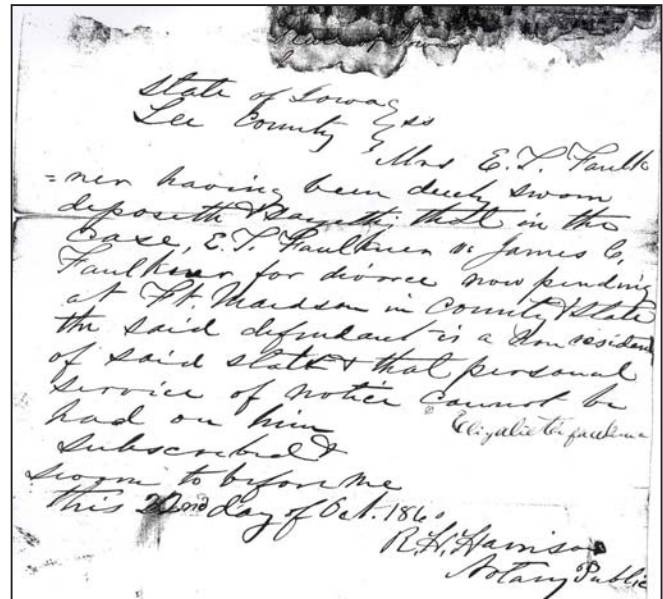 State of Iowa
State of Iowa } ss
Lee County }
Mrs E. T. Faulk
=ner having been duely sworn
deposeth & sayeth, that in the
Case, E. T. Faulkner vs James C.
Faulkner for divorce now pending
at Ft. Maidson in County & State
the said defendant is a non resident
of said state & that personal
service of notice cannot be
had on him
Elizabeth faulkner
Subscribed &
sworn to before me
this 22nd day of Oct. 1860
R. H. Harrison
Notary Public